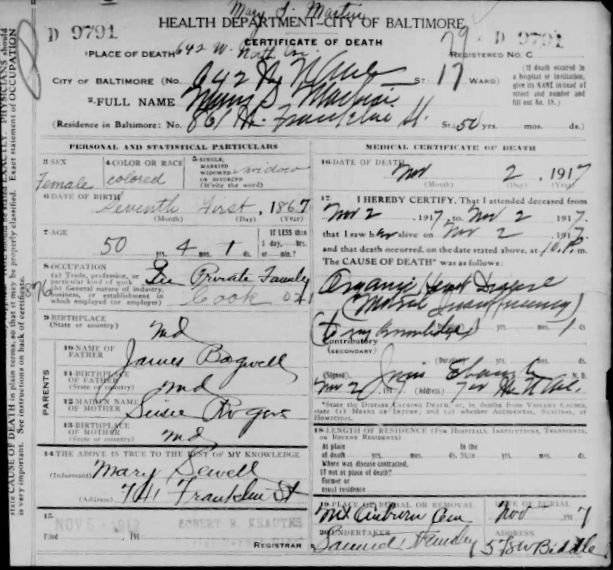 Mary S. Martin
D 9791
HEALTH DEPARTMENT—CITY OF BALTIMORE
79 - D 9791
CERTIFICATE OF DEATH
1PLACE OF DEATH 642 W. North Av.
REGISTERED NO. C
CITY OF BALTIMORE (No. 642 W. N Ave ST: 17 WARD)
(If death occurred in a hospital or institution, give its NAME instead of street and number and fill out No. 18.)
2FULL NAME Mary S. Martin
(Residence in Baltimore: No. 861 W. Franklin St. St: 50 yrs. mos. ds.)
PERSONAL AND STATISTICAL PARTICULARS
3 SEX Female
4 COLOR OR RACE colored
5 SINGLE, MARRIED WIDOWED OR DIVORCED (Write the word) widow
6 DATE OF BIRTH Seventh First, 1867
(Month) (Day) (Year)
7 AGE 50 yrs. 4 mos. 1 ds.
If LESS than 1 day, hrs. or min.
8 OCCUPATION
(a) Trade, profession, or particular kind of work
(b) General nature of industry, business, or establishment in which employed (or employer)
Private Family
Cook
9 BIRTHPLACE (State or country) Md
PARENTS
10 NAME OF FATHER James Bagwell
11 BIRTHPLACE OF FATHER (State or country) Md
12 MAIDEN NAME OF MOTHER Susie Rogers
13 BIRTHPLACE OF MOTHER (State or country) Md
14 THE ABOVE IS TRUE TO THE BEST OF MY KNOWLEDGE
(Informant) Mary Sewell
(Address) 741 Franklin St
15
Filed NOV 5 1917 191
REGISTRAR
MEDICAL CERTIFICATE OF DEATH
16 DATE OF DEATH Nov 2, 1917
(Month) (Day) (Year)
17 I HEREBY CERTIFY, That I attended deceased from
Nov 2, 1917, to Nov 2 1917.
that I saw her alive on Nov 2 1917.
and that death occurred, on the date stated above, at 10 P.m.
The CAUSE OF DEATH* was as follows:
Organic Heart Disease
(Mitral Insufficiency)
(to my knowledge) yrs. mos. 1 ds.
Contributory (SECONDARY)
(Duration) yrs. mos. ds.
(Signed) M. D.
Nov 2, 1917 (Address) W. N. Ave.
*State the DISEASE CAUSING DEATH, or, in deaths from VIOLENT CAUSES, state (1) MEANS OF INJURY; and (2) whether ACCIDENTAL, SUICIDAL, or HOMICIDAL.
18 LENGTH OF RESIDENCE (FOR HOSPITALS, INSTITUTIONS, TRANSIENTS, OR RECENT RESIDENTS)
At place of death yrs. mos. ds. In the State yrs. mos. ds.
Where was disease contracted, If not at place of death?
Former or usual residence
19 PLACE OF BURIAL OR REMOVAL Mt Auburn Cem
DATE OF BURIAL Nov 1917
20 UNDERTAKER Samuel Hemsley
ADDRESS 578 W Biddle